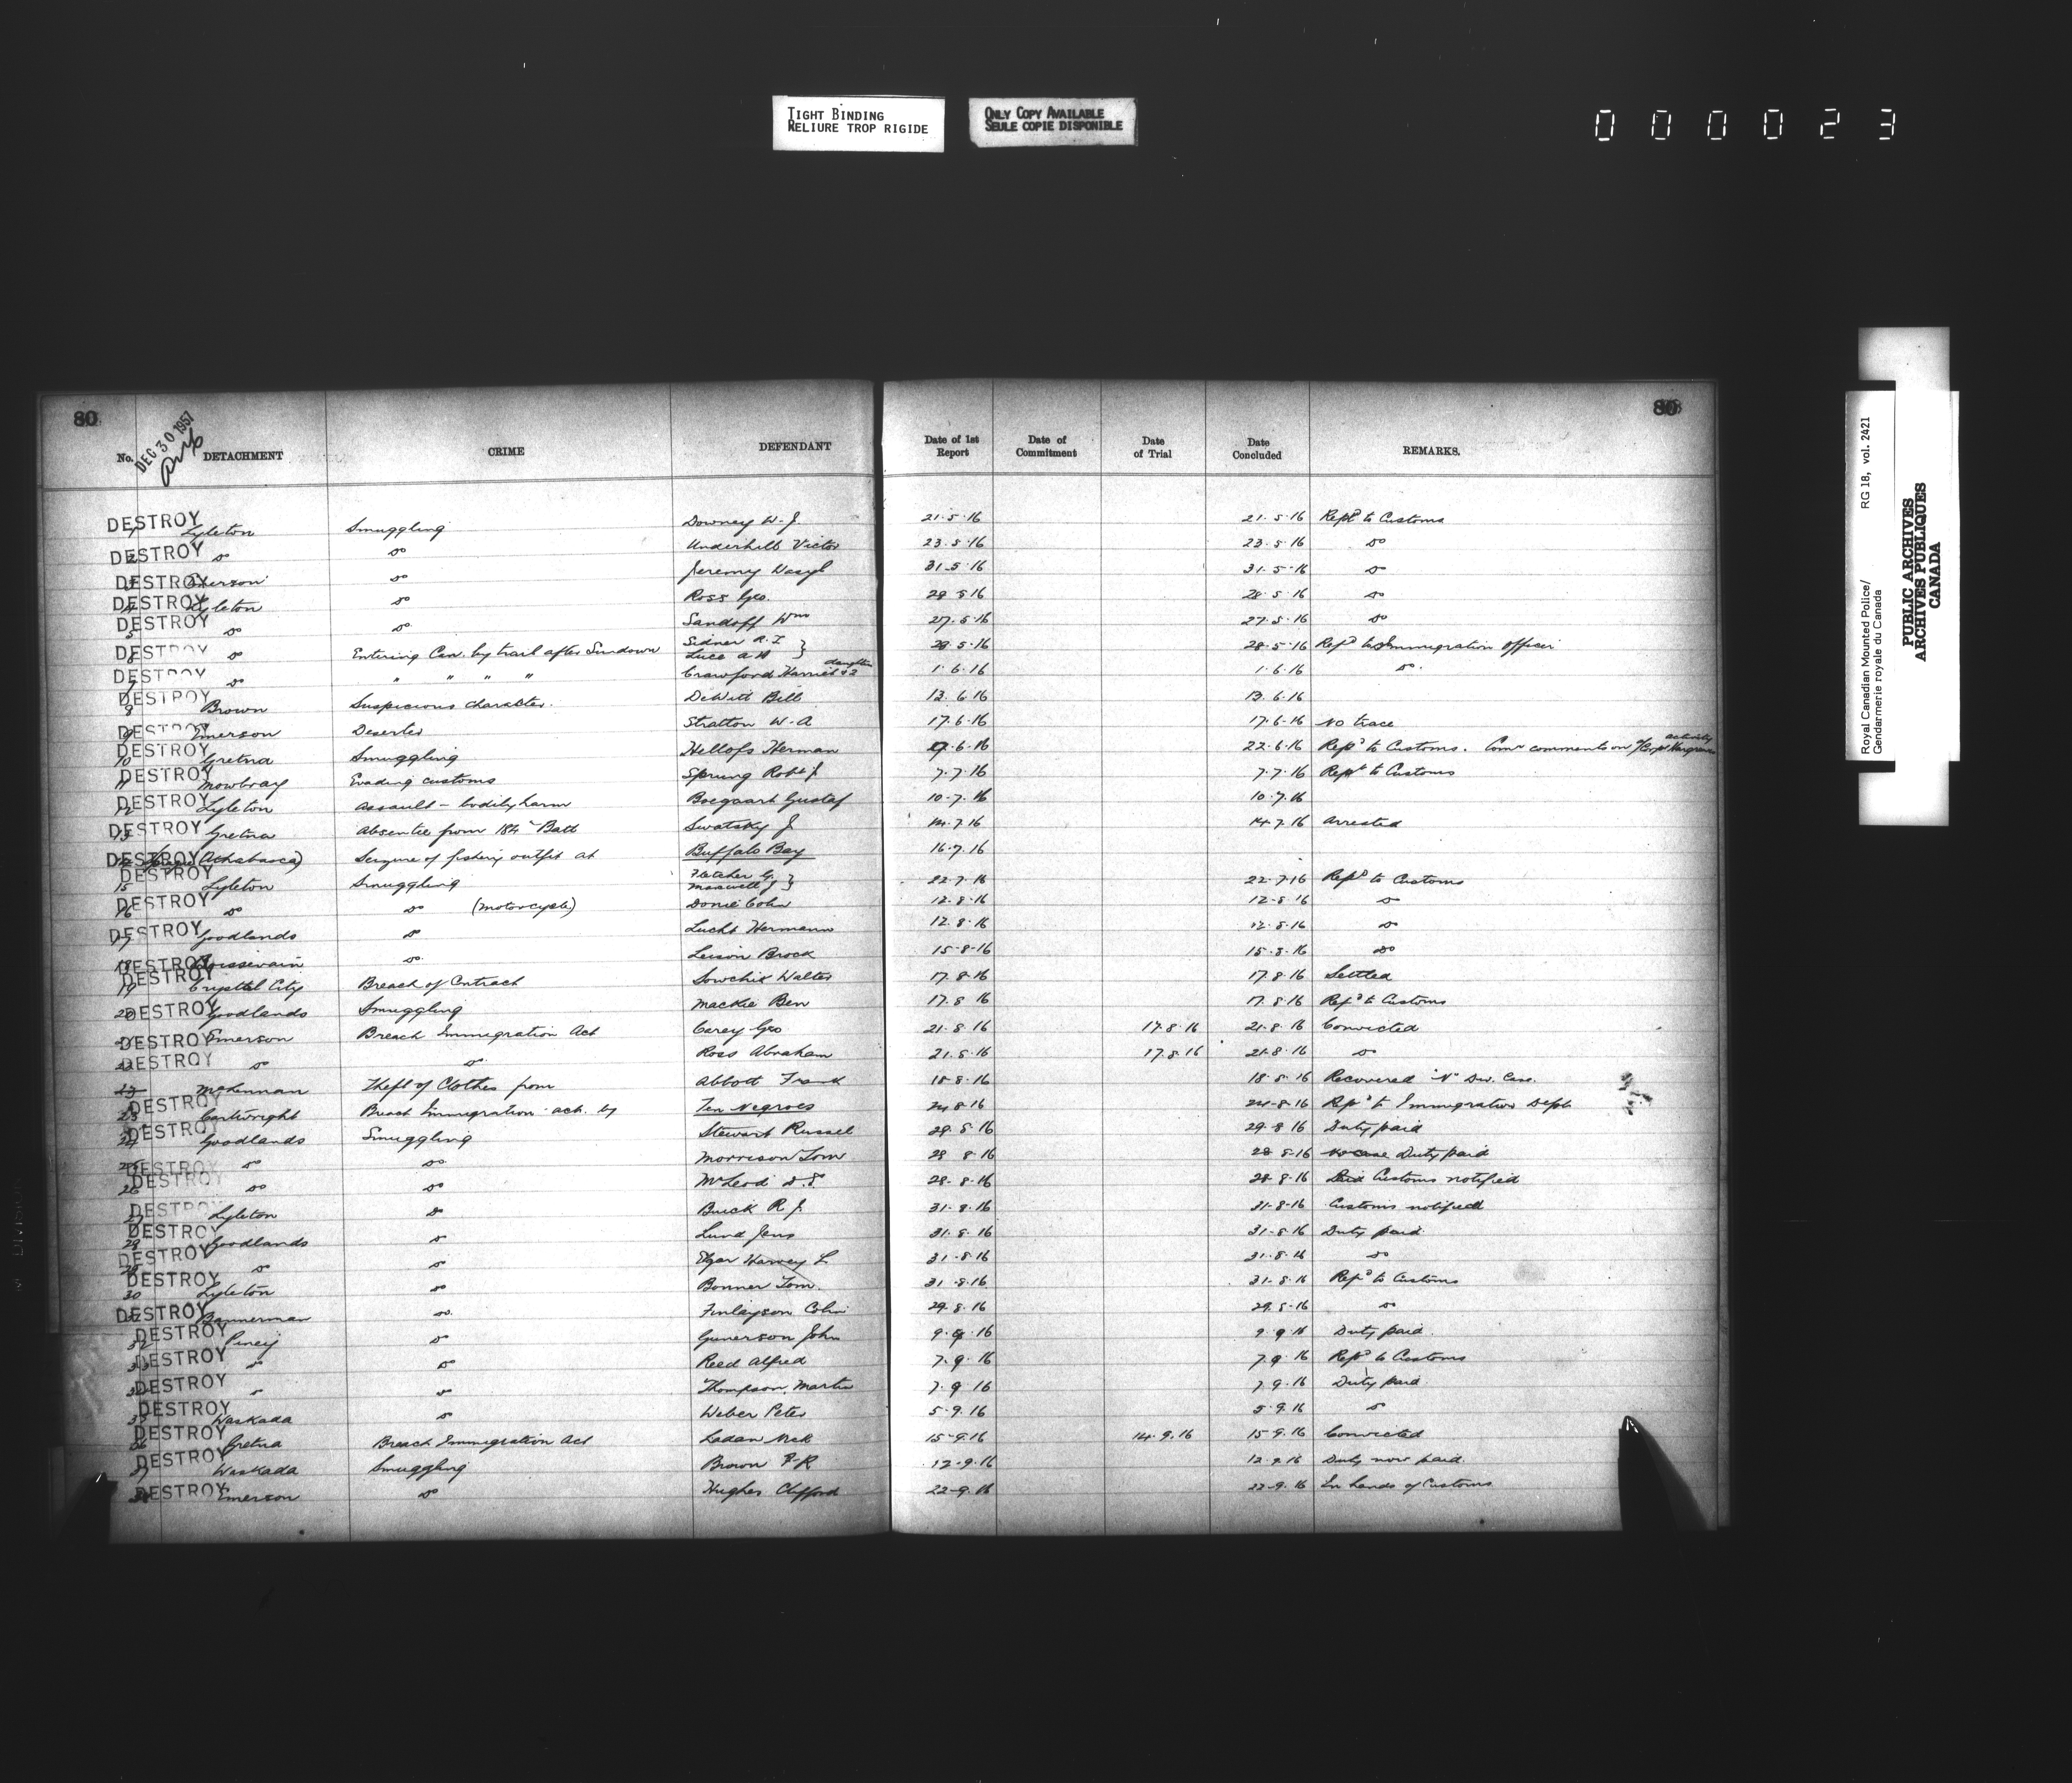 TIGHT BINDING
RELIURE TROP RIGIDE
ONLY COPY AVAILABLE
SEULE COPIE DISPONIBLE
000023
80
80
DEC 30 1957
No. DETACHMENT CRIME DEFENDANT Date of 1st Report Date of Commitment Date of Trial Date Concluded REMARKS.
DESTROY 1 Lyleton Smuggling Downey W. J. 21.5.16 21.5.16 Repd to Customs
DESTROY 2 do do Underhill Victor 23.5.16 23.5.16 do
DESTROY 3 Emerson do Jeremy Wasyl 31.5.16 31.5.16 do
DESTROY 4 Lyleton do Ross Geo. 28 5 16 28.5.16 do
DESTROY 5 do do Sandoff Wm 27.5.16 27.5.16 do
DESTROY 6 do Entering Can. by trail after Sundown Sidner R. I. Luce A H } 28.5.16 28.5.16 Repd to Immigration Officer
DESTROY 7 do " " " " Crawford Harriet & 2 daughters 1.6.16 1.6.16 do
DESTROY 8 Brown Suspicious character. DeWitt Bill 13.6.16 13.6.16
DESTROY 9 Emerson Deserter Stratton W. A 17.6.16 17.6.16 No trace
DESTROY 10 Gretna Smuggling Hellofs Herman 17.6.16 22.6.16 Repd to Customs. Comr comments on activity of Corpl Hargraves
DESTROY 11 Mowbray Evading customs Sprung Robt J 7.7.16 7.7.16 Repd to Customs
DESTROY 12 Lyleton Assault - bodily harm Boegaart Gustaf 10.7.16 10.7.16
DESTROY 13 Gretna Absentee from 184th Batt Swatsky J 14.7.16 14.7.16 Arrested
DESTROY 14 Sprague (Athabasca) Seizure of fishing outfit at Buffalo Bay 16.7.16
DESTROY 15 Lyleton Smuggling Fletcher G. Maxwell J } 22.7.16 22.7.16 Repd to Customs
DESTROY 16 do do (Motorcycle) Donie Colin 12.8.16 12.8.16 do
DESTROY 17 Goodlands do Lucht Hermann 12.8.16 12.8.16 do
DESTROY 18 Boissevain do Leison Brock 15-8-16 15.8.16 do
DESTROY 19 Crystal City Breach of Contract Sowchik Walter 17.8.16 17.8.16 Settled
DESTROY 20 Goodlands Smuggling Mackie Ben 17.8.16 17.8.16 Repd to Customs
DESTROY 21 Emerson Breach Immigration Act Carey Geo 21.8.16 17.8.16 21.8.16 Convicted
DESTROY 22 do do Ross Abraham 21.8.16 17.8.16 21.8.16 do
23 McKennan Theft of Clothes from Abbott Frank 18.8.16 18.8.16 Recovered "N" Div. Case.
DESTROY 23 Cartwright Breach Immigration act. by Ten Negroes 24.8.16 24.8.16 Repd to Immigration Dept
DESTROY 24 Goodlands Smuggling Stewart Russel 29.8.16 29.8.16 Duty paid
DESTROY 25 do do Morrison Tom 28 8.16 28 8.16 Duty paid
DESTROY 26 do do McLeod D. S. 28.8.16 28.8.16 Customs notified
DESTROY 27 Lyleton do Buick R J. 31.8.16 31-8-16 Customs notified
DESTROY 28 Goodlands do Lund Jens 31.8.16 31.8.16 Duty paid
DESTROY 29 do do Elgar Harvey L 31.8.16 31.8.16 do
DESTROY 30 Lyleton do Bonner Tom. 31.8.16 31.8.16 Repd to Customs
DESTROY 31 Bannerman do Finlayson Colin 29.8.16 29.8.16 do
DESTROY 32 Piney do Gunerson John 9.9.16 9.9.16 Duty paid.
DESTROY 33 do do Reed Alfred 7.9.16 7.9.16 Repd to Customs
DESTROY 34 do do Thompson Martin 7.9.16 7.9.16 Duty paid.
DESTROY 35 Waskada do Weber Peter 5.9.16 5.9.16 do
DESTROY 36 Gretna Breach Immigration Act Ladan Nick 15.9.16 14.9.16 15.9.16 Convicted
DESTROY 37 Waskada Smuggling Brown F. R 12.9.16 12.9.16 Duty now paid.
DESTROY 38 Emerson do Hughes Clifford 22-9.16 22-9.16 In hands of Customs
Royal Canadian Mounted Police/
Gendarmerie royale du Canada
RG 18, vol. 2421
PUBLIC ARCHIVES
ARCHIVES PUBLIQUES
CANADA